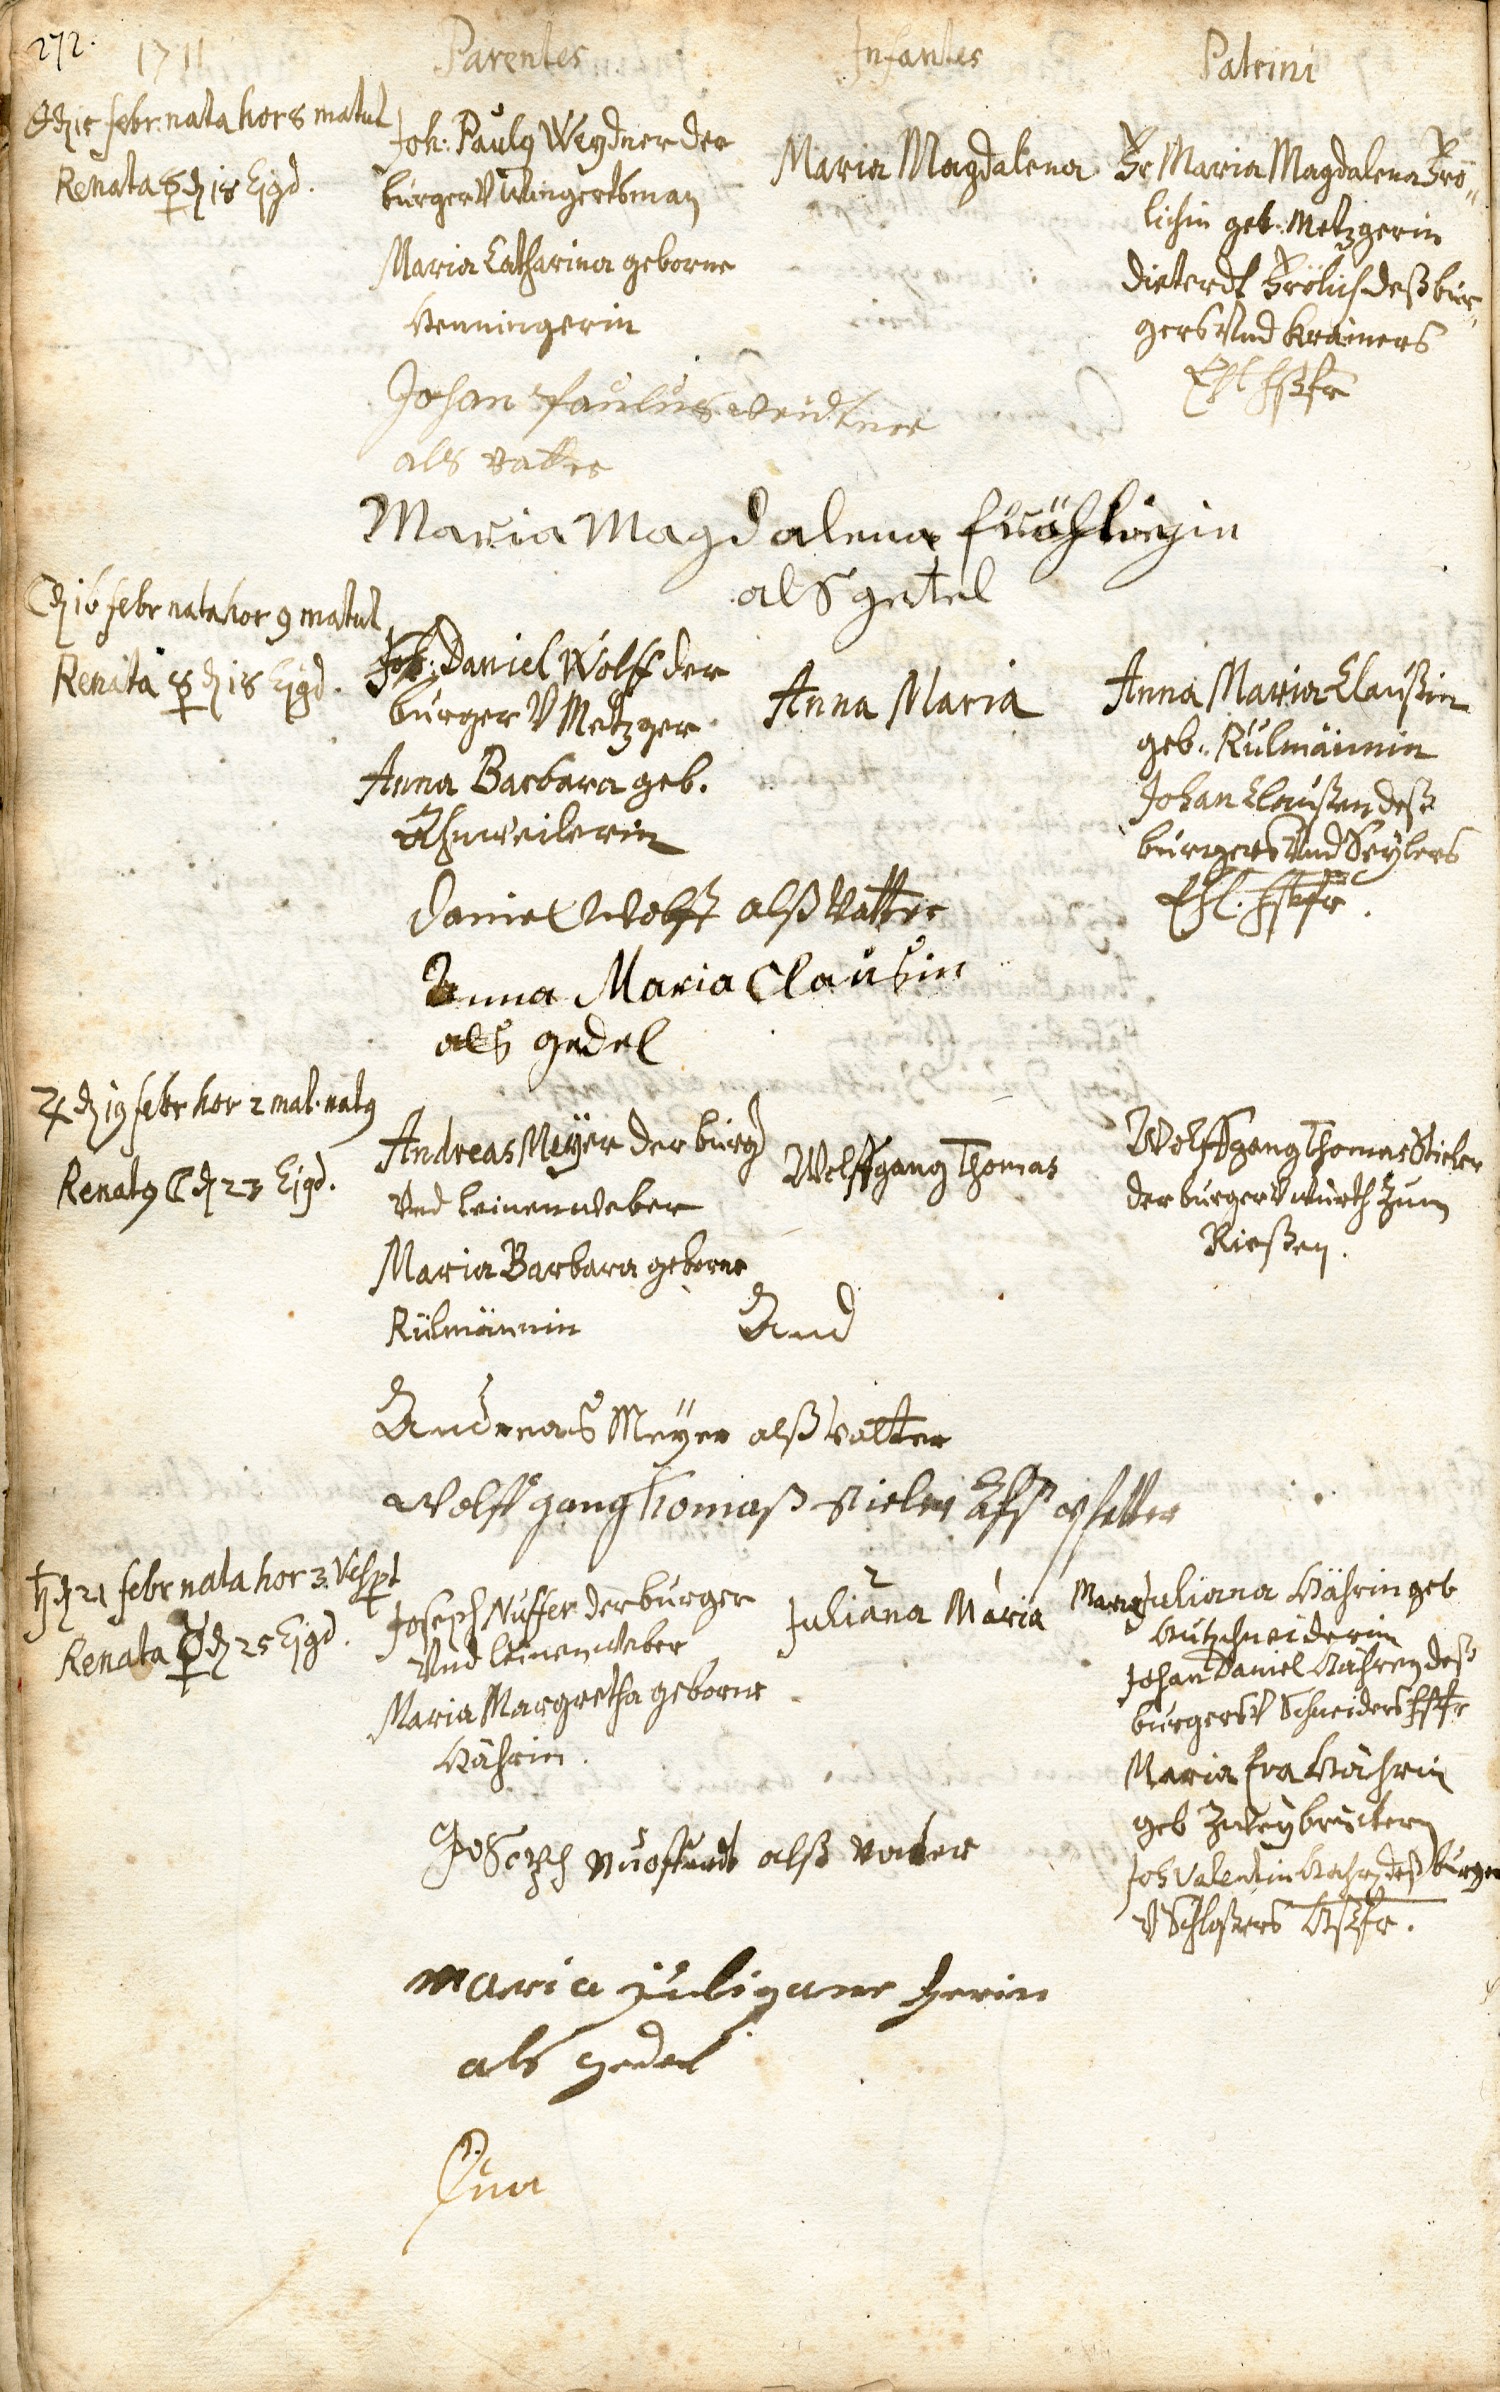 272.
1711
Parentes
Infantes
Patrini
☉ d 15 febr: nata hor 8 matut
Renata ☿ d 18 Ejqd.
Joh: Paulg Weydner der
burger V Wingertsman
Maria Catharina geborne
Henningerin
Maria Magdalena
Fr Maria Magdalena Frö"
lichin geb: Metzgerin
Dieterdt Frölich deß bür"
gers Vnd Krämers
Ehl Hßfr
Johan Paulus Weidtner
als vatter
Maria Magdalena Fröhligin
als getel
☾ d 16 febr nata hor 9 matut
Renata ☿ d 18 Ejqd.
Joh: Daniel Wolff der
burger V Metzger
Anna Barbara geb.
Ahnweilerin
Anna Maria
Anna Maria Claußin
geb: Rülmännin
Johan Claußen deß
burgers Vnd Seylers
Ehl. Hßfr.
Daniel Wolff alß Vatter
Anna Maria Clausin
als gedel
♃ d 19 febr hor 2 mat. natg
Renatg ☾ d 23 Ejqd.
Andreas Meÿer der burg
Vnd leinenweber
Maria Barbara geborne
Rülmännin
Wolffgang Thomas
Wolffgang Thomas Stieler
der burger V würth zum
Rießen.
And
Andreas Meÿer alß Vatter
Wolffgang Thomaß Stieler Alß pfetter
♄ d 21 febr nata hor 3 Vespt
Renata ☿ d 25 Ejqd.
Joseph Nuffer der burger
Vnd leinenweber
Maria Margretha geborne
Hährin.
2 1
Juliana Maria
Maria Juliana Hährin geb
Johan Daniel Hähren deß
burgers V Schneiders Hßfr
Maria Eva Hährin
geb Zweybrückern
Joh Valentin Hähr deß burger
V Schloßers Hßfr.
Joseph alß vater
Maria Juligane Herin
als gedel